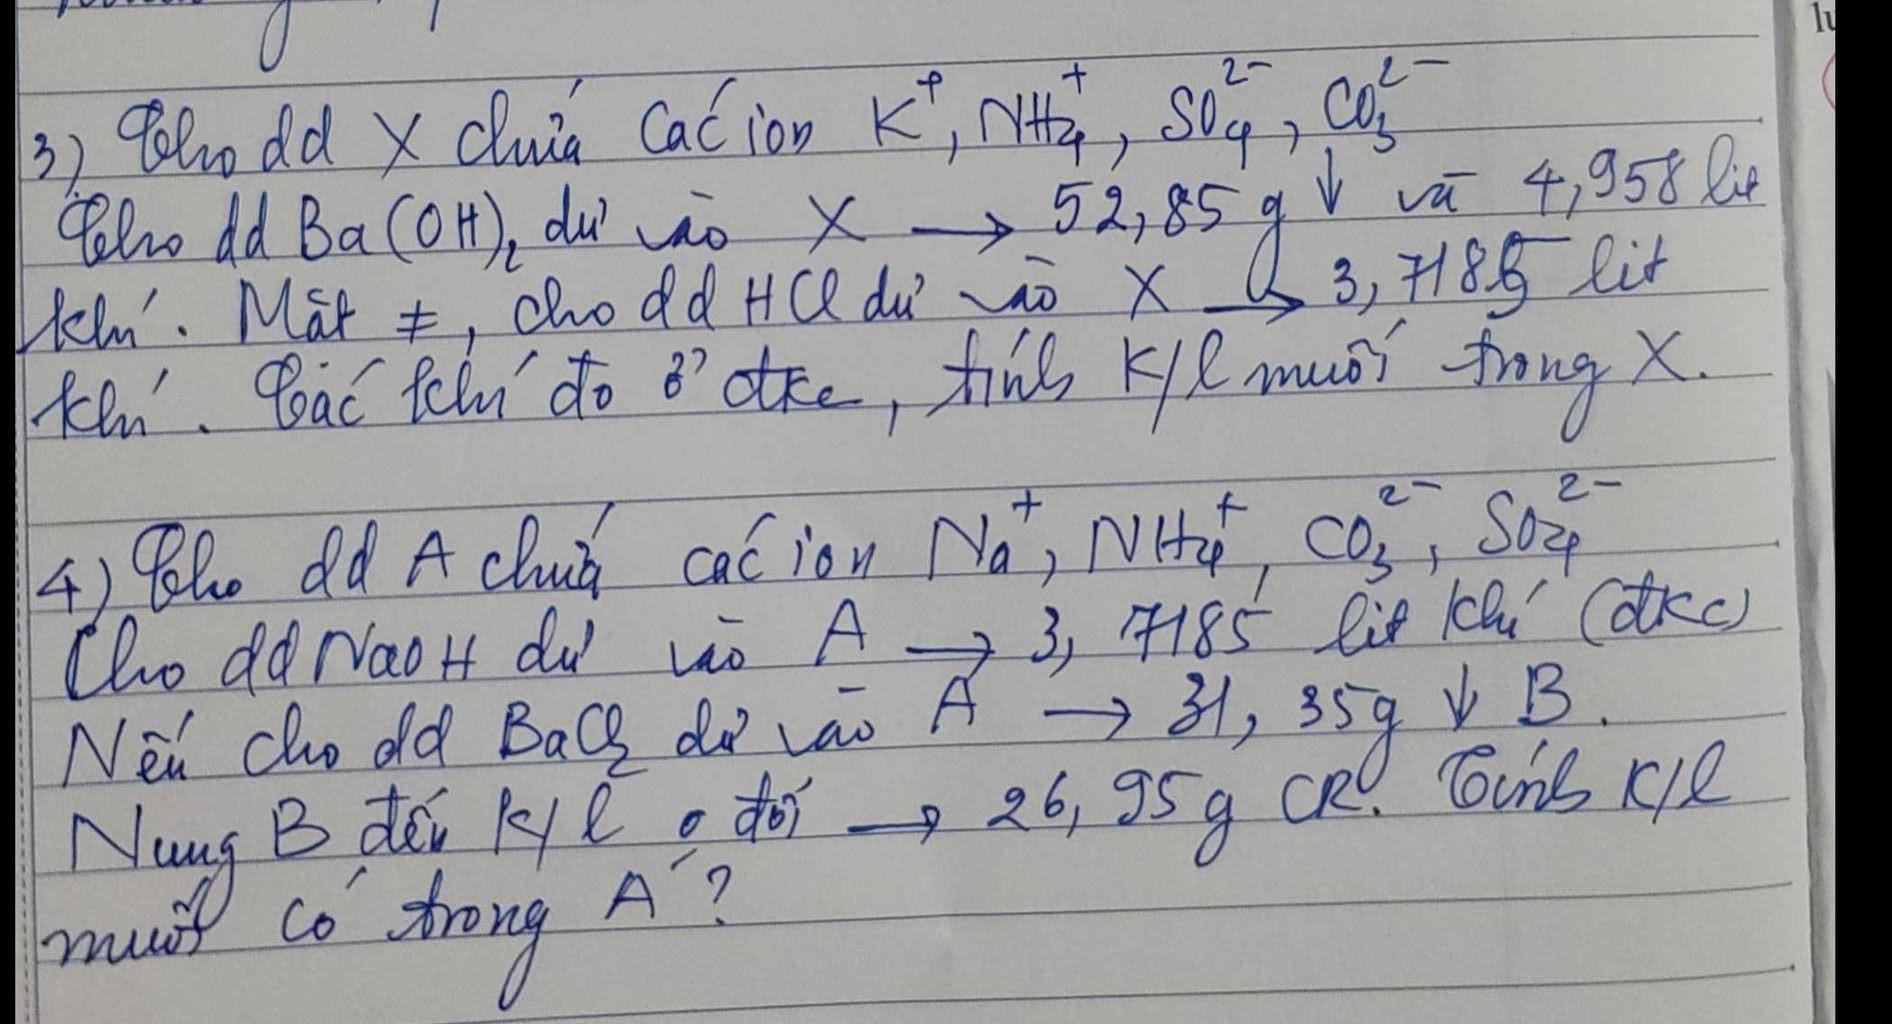 3) Cho dd X chứa các ion K⁺, NH₄⁺, SO₄²⁻, CO₃²⁻
Cho dd Ba(OH)₂ dư vào X → 52,85g ↓ và 4,958 lit
khí. Mặt ≠, cho dd HCl dư vào X → 3,7185 lit
khí. Các khí đo ở đkc, tính K/l muối trong X.
4) Cho dd A chứa các ion Na⁺, NH₄⁺, CO₃²⁻, SO₄²⁻
Cho dd NaOH dư vào A → 3,7185 lit khí (đkc)
Nếu cho dd BaCl₂ dư vào A → 31,35g ↓ B.
Nung B đến K/l o đổi → 26,95g CR. Tính K/l
muối có trong A?
lu